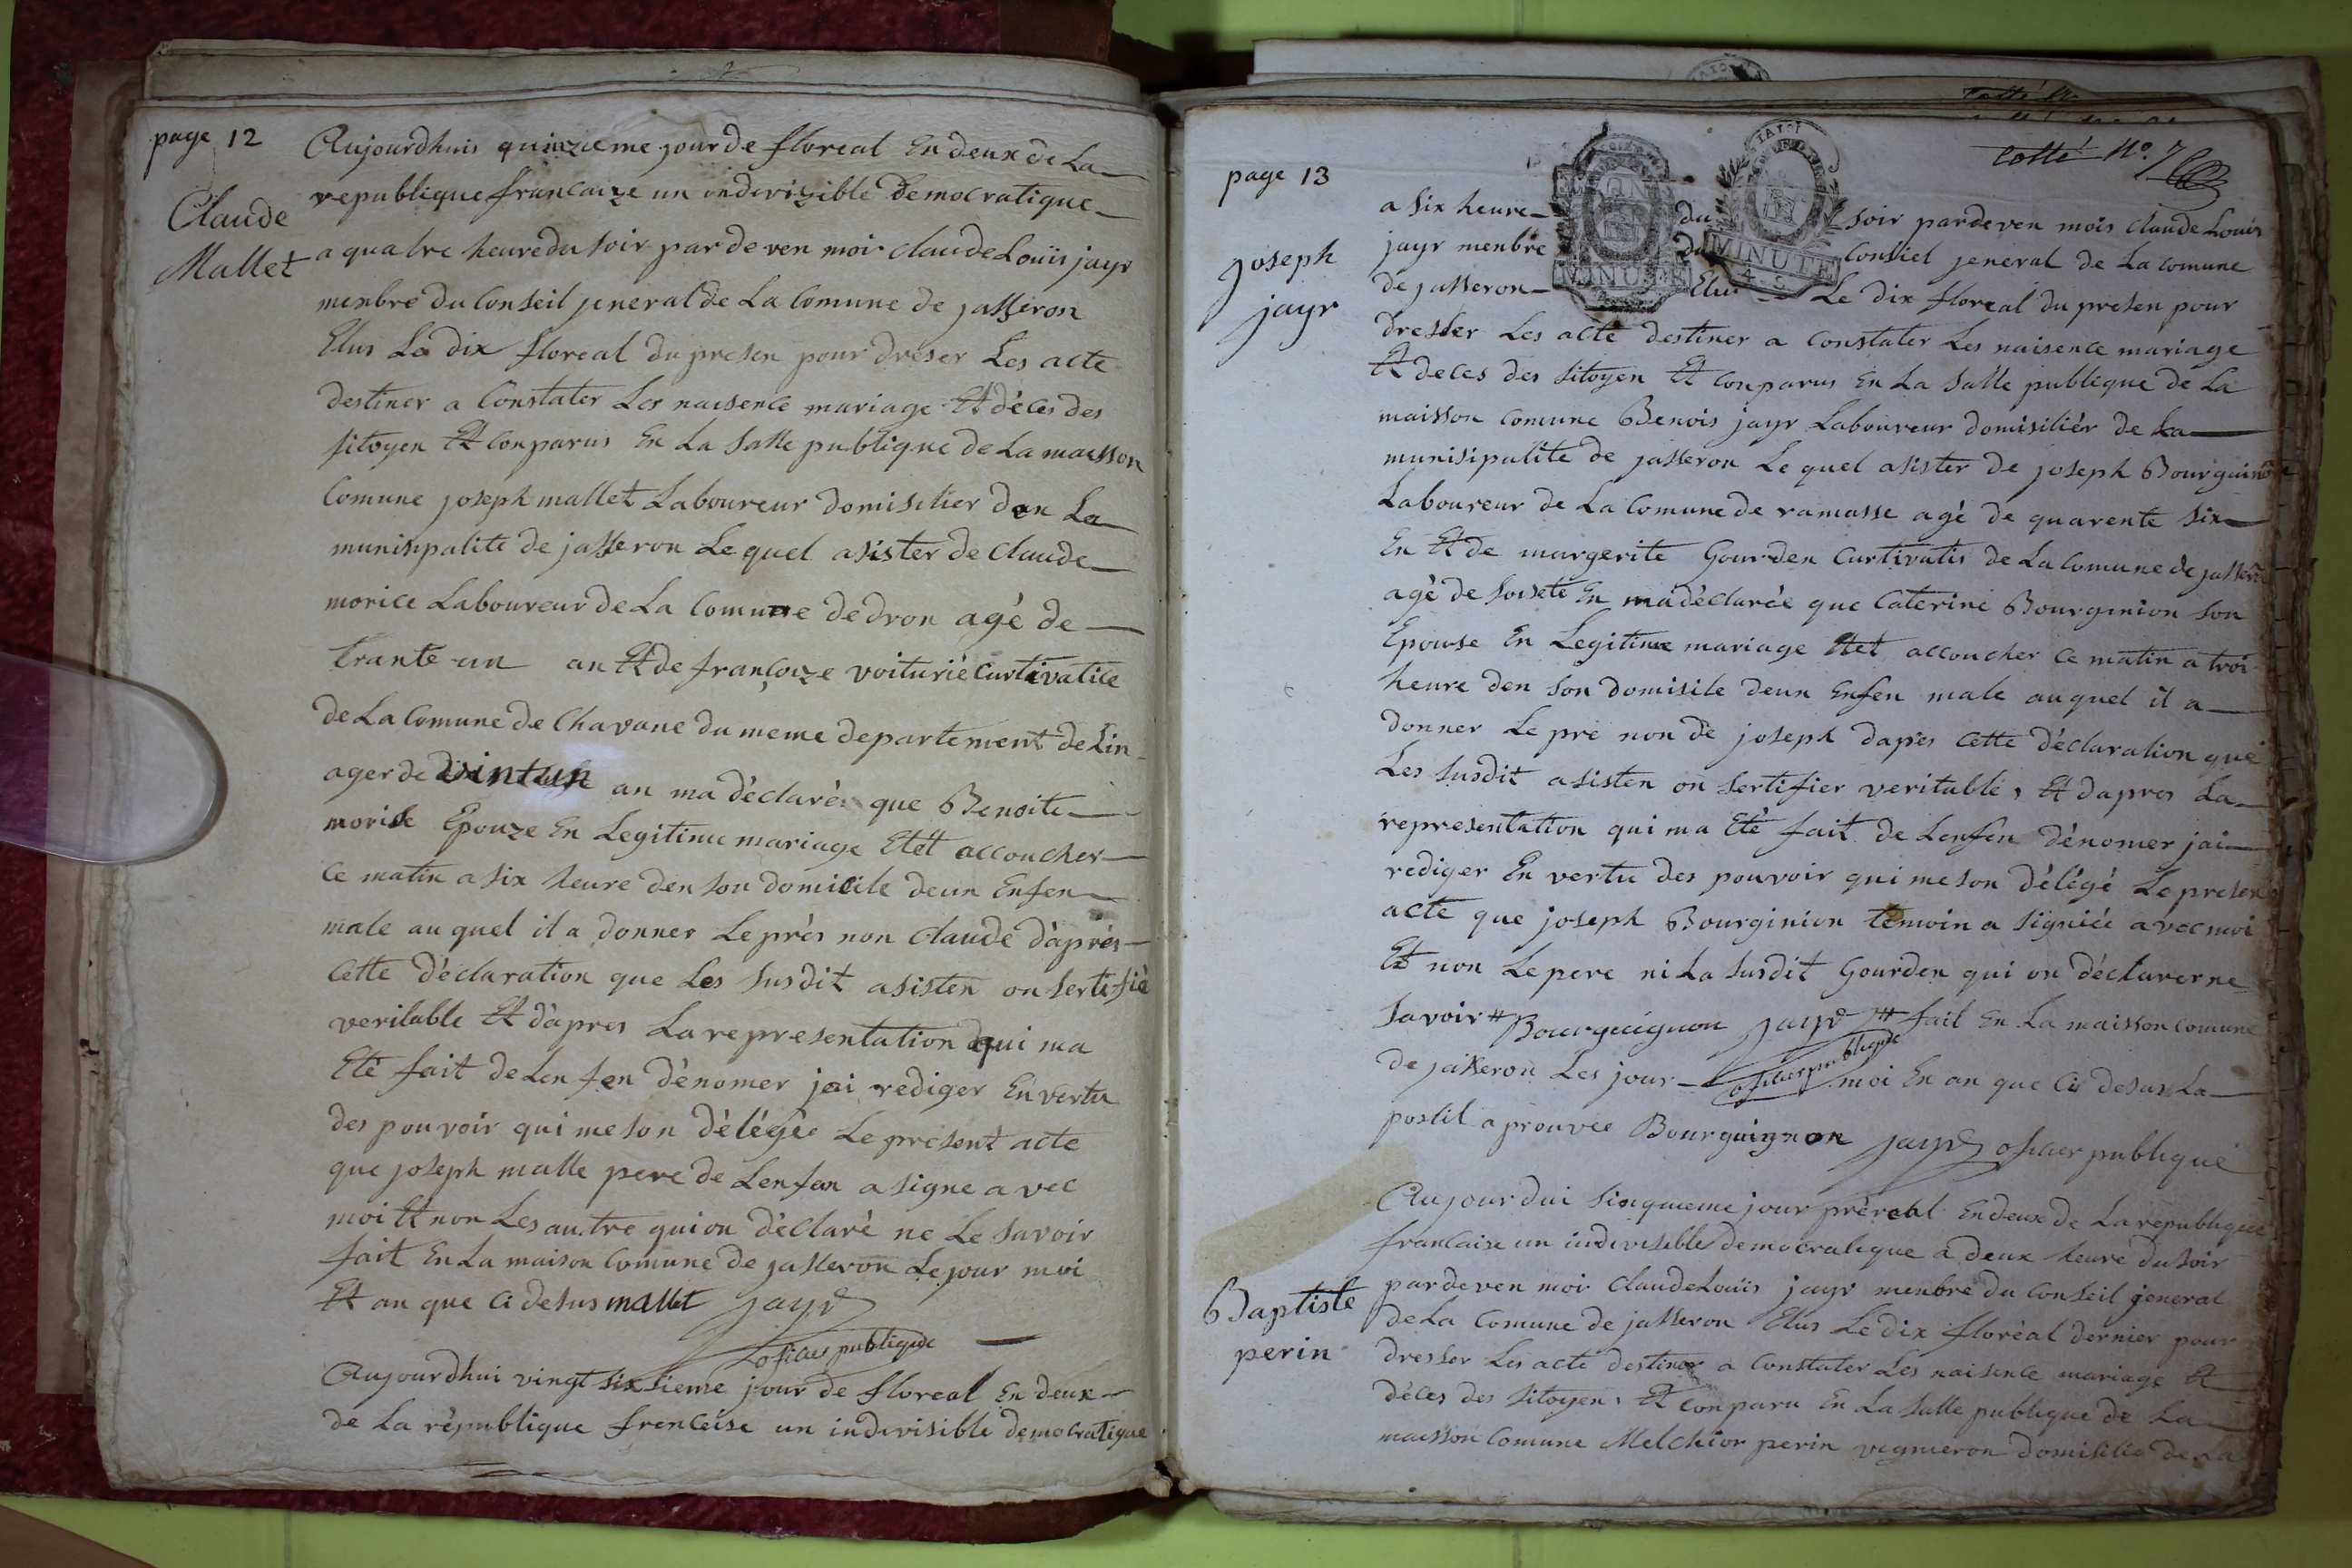 page 12
Claude
Mallet
Aujourdhuis quinzieme jour de floreal En deux de La
republique francaize un indivizible Democratique
a quatre heure du soir par de ven moi claude Louïs jayr
menbre du Conseil jeneral de La Comune de jasseron
Elus Le dix floreal du presen pour dreser Les acte
destiner a Constater Les naisence mariage Et déces des
sitoyen Et Conparus En La Salle publique de La maisson
Comune joseph mallet Laboureur domisilier den La
munisipalite de jasseron Le quel asister de Claude
morice Laboureur de La Comune de dron agé de
trante un an Et de françoize voiturié Curtivatice
de La Comune de Chavane du meme departement de Lin
ager de vintun an ma déclaré que Benoite
morise Epouze En Legitime mariage Etét accoucher
ce matin a six heure den son domicile deun Enfen
male au quel il a donner Le prés non claude dáprés
cette déclaration que Les susdit asisten on sertifié
veritable Et dápres La representation qui ma
Eté fait de Len fen dénomer jai rediger En vertu
des pouvoir qui me son délégée Le present acte
que joseph malle pere de Lenfan a signe avec
moi Et non Les autre qui on déclaré ne Le savoir
fait En La maison Comune de jasseron Le jour moi
Et an que Ci desus mallet jayr
oficier publique
Aujourdhui vingt sixsieme jour de floreal En deux
de La république frenceise un indivisible democratique
page 13
Cotté No. 7
joseph
jayr
MINUTE
MINUTE
a six heure du soir pardeven mois claude Louis
jayr menbre du Consiel jeneral de La comune
de jasseron Elus Le dix floreal du presen pour
dresser Les acte destiner a Constater Les naisence mariage
Et deces des sitoyen Et Conparus En La Salle publique de La
maisson comune Benois jayr Laboureur domisiliér de La
munisipalite de jasseron Le quel asister de joseph Bourguinon
Laboureur de La Comune de ramasse agé de quarente six
En Et de margerite Gourden Curtivatis de La Comune de jasseron
agé de soisete En ma déclarée que Caterine Bourginion son
Epouse En Legitime mariage Etet accoucher ce matin a troi
heure den son domisile deun Enfen male auquel il a
donner Le pre non de joseph dapres cette déclaration que
Les susdit asisten on sertifier veritable, Et dapres La
representation qui ma Eté fait de Lenfen dénomer jai
rediger En vertu des pouvoir qui me son délégé Le presen
acte que joseph Bourginion temoin a signiée avec moi
Et non Le pere ni La susdit Gourden qui on déclarer ne
savoir # Bourguignon jayr # fait En La maisson comune
de jasseron Les jour oficier publique moi En an que Ci desus La
postil aprouvée Bourguignon jayr oficier publique
Baptiste
perin
Aujourdui sinquieme jour préreal En deux de La republique
francaise un indivisible democratique a deux heure du soir
pardeven moi claude Louïs jayr menbre du Conseil jeneral
de La Comune de jasseron Elus Le dix floréal dernier pour
dresser Les acte destiner a Constater Les naisence mariage Et
déces des sitoyen, Et Conparu En La Salle publique de La
maisson Comune Melchior perin vigneron domisilié de La